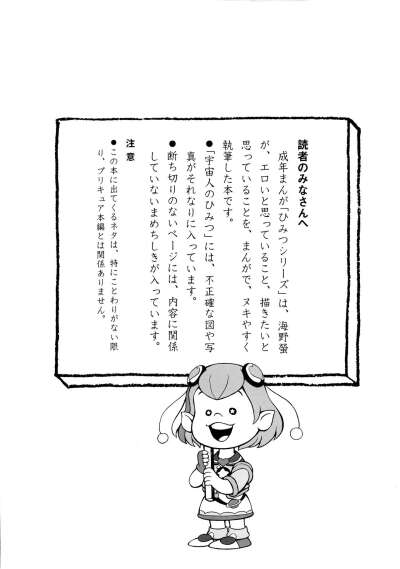 読者のみなさんへ
成年まんが「ひみつシリーズ」は、海野螢
が、エロいと思っていること、描きたいと
思っていることを、まんがで、ヌキやすく
執筆した本です。
●「宇宙人のひみつ」には、不正確な図や写
真がそれなりに入っています。
●断ち切りのないページには、内容に関係
していないまめちしきが入っています。
注意
●この本に出てくるネタは、特にことわりがない限
り、プリキュア本編とは関係ありません。